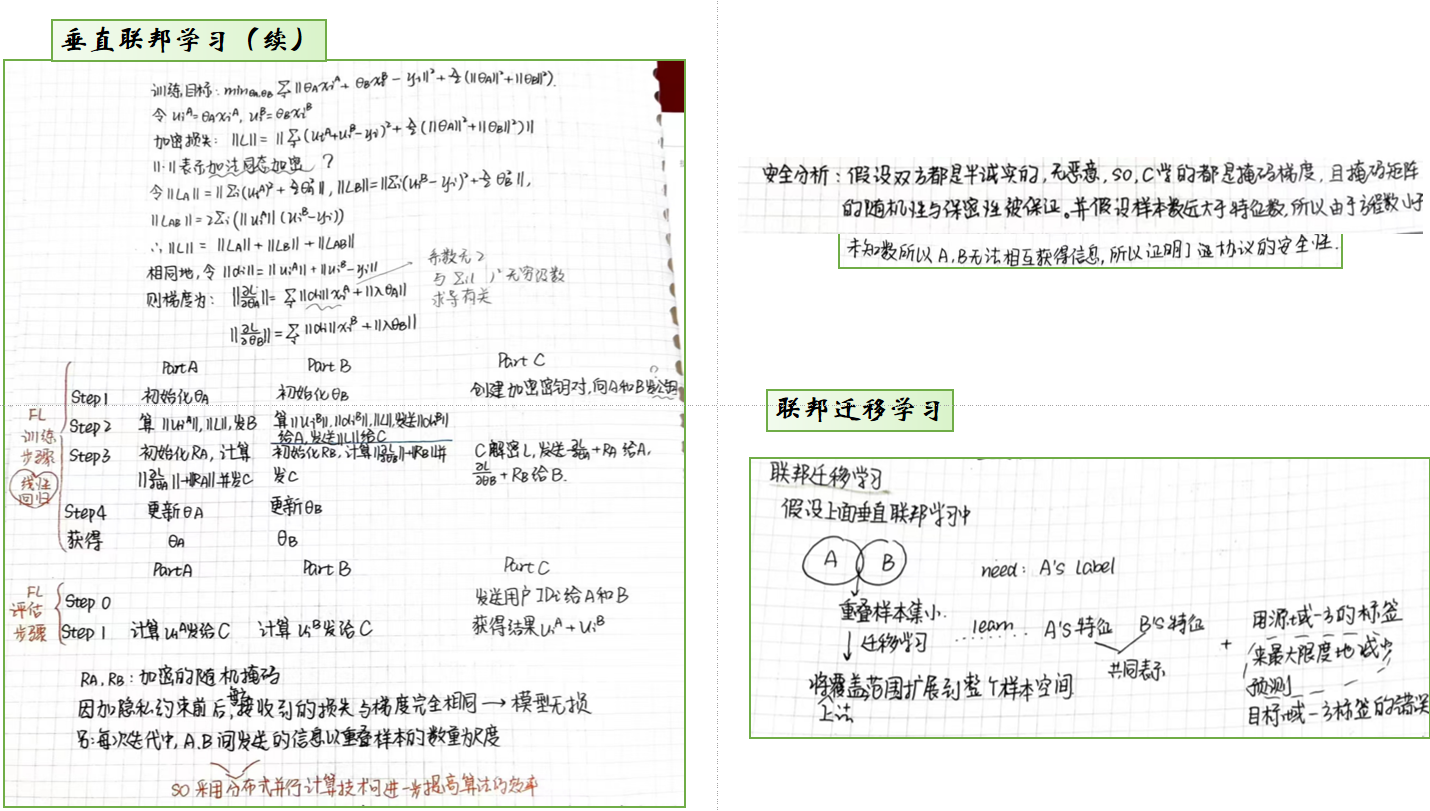 垂直联邦学习（续）
训练目标: minθA,θB Σi ||θAxiA + θBxiB − yi||² + λ/2 (||θA||² + ||θB||²).
令 uiA = θAxiA, uiB = θBxiB
加密损失: ||L|| = ||Σi (uiA + uiB − yi)² + λ/2 (||θA||² + ||θB||²)||
||·|| 表示加法同态加密 ?
令 ||LA|| = ||Σi(uiA)² + λ/2 θA²||, ||LB|| = ||Σi(uiB − yi)² + λ/2 θB²||,
||LAB|| = 2Σi (||uiA|| (uiB − yi))
∴ ||L|| = ||LA|| + ||LB|| + ||LAB||
相同地, 令 ||di|| = ||uiA|| + ||uiB − yi||
系数无2
与Σi( )²无穷级数
求导有关
则梯度为: ||∂L/∂θA|| = Σi ||di|| xiA + ||λθA||
||∂L/∂θB|| = Σi ||di|| xiB + ||λθB||
Part A Part B Part C
FL
训练
步骤
线性
回归
Step1 初始化θA 初始化θB 创建加密密钥对, 向A和B发公钥 ?
Step2 算 ||uiA||, ||LA||, 发B 算 ||uiB||, ||diB||, ||L||, 发送||diB||
给A, 发送||L||给C
Step3 初始化RA, 计算 初始化RB, 计算||∂L/∂θB||+||RB||并 C解密L, 发送∂L/∂θA + RA 给A,
||∂L/∂θA||+||RA||并发C 发C ∂L/∂θB + RB 给B.
Step4 更新θA 更新θB
获得 θA θB
Part A Part B Part C
FL
评估
步骤
Step 0 发送用户IDi给A和B
Step1 计算uiA发给C 计算uiB发给C 获得结果uiA + uiB
RA, RB: 加密的随机掩码
因加隐私约束前后, 接收到的损失与梯度完全相同 → 模型无损
另: 每次迭代中, A.B间发送的信息以重叠样本的数量为尺度
SO 采用分布式并行计算技术可进一步提高算法的效率
安全分析: 假设双方都是半诚实的, 无恶意, SO, C学的都是掩码梯度, 且掩码矩阵
的随机性与保密性被保证。并假设样本数远大于特征数, 所以由于方程数小于
未知数所以A.B无法相互获得信息, 所以证明了这协议的安全性.
联邦迁移学习
联邦迁移学习
假设上面垂直联邦学习中
A B need: A's label
重叠样本集小.
↓ 迁移学习
将覆盖范围扩展到整个样本空间
learn A's特征 B's特征
共同表示
+
用源域一方的标签
来最大限度地减少
预测
目标域一方标签的错误